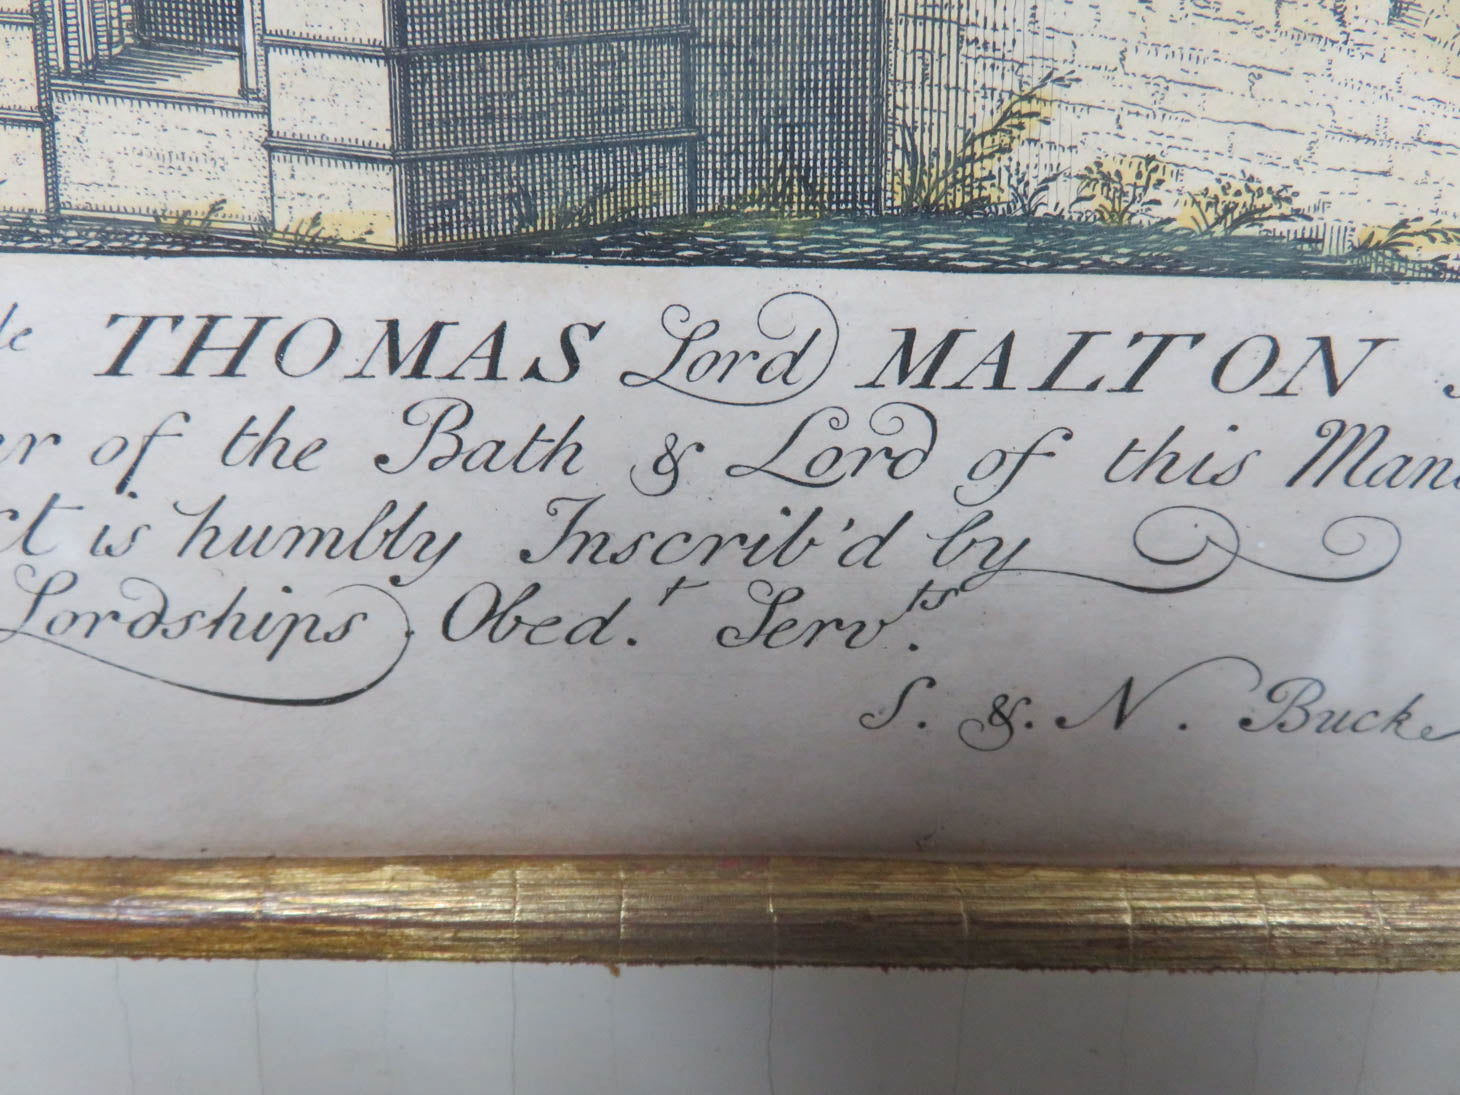 le THOMAS Lord MALTON
er of the Bath & Lord of this Man
ct is humbly Inscrib'd by
Lordships Obed.t Serv.ts
S. & N. Buck